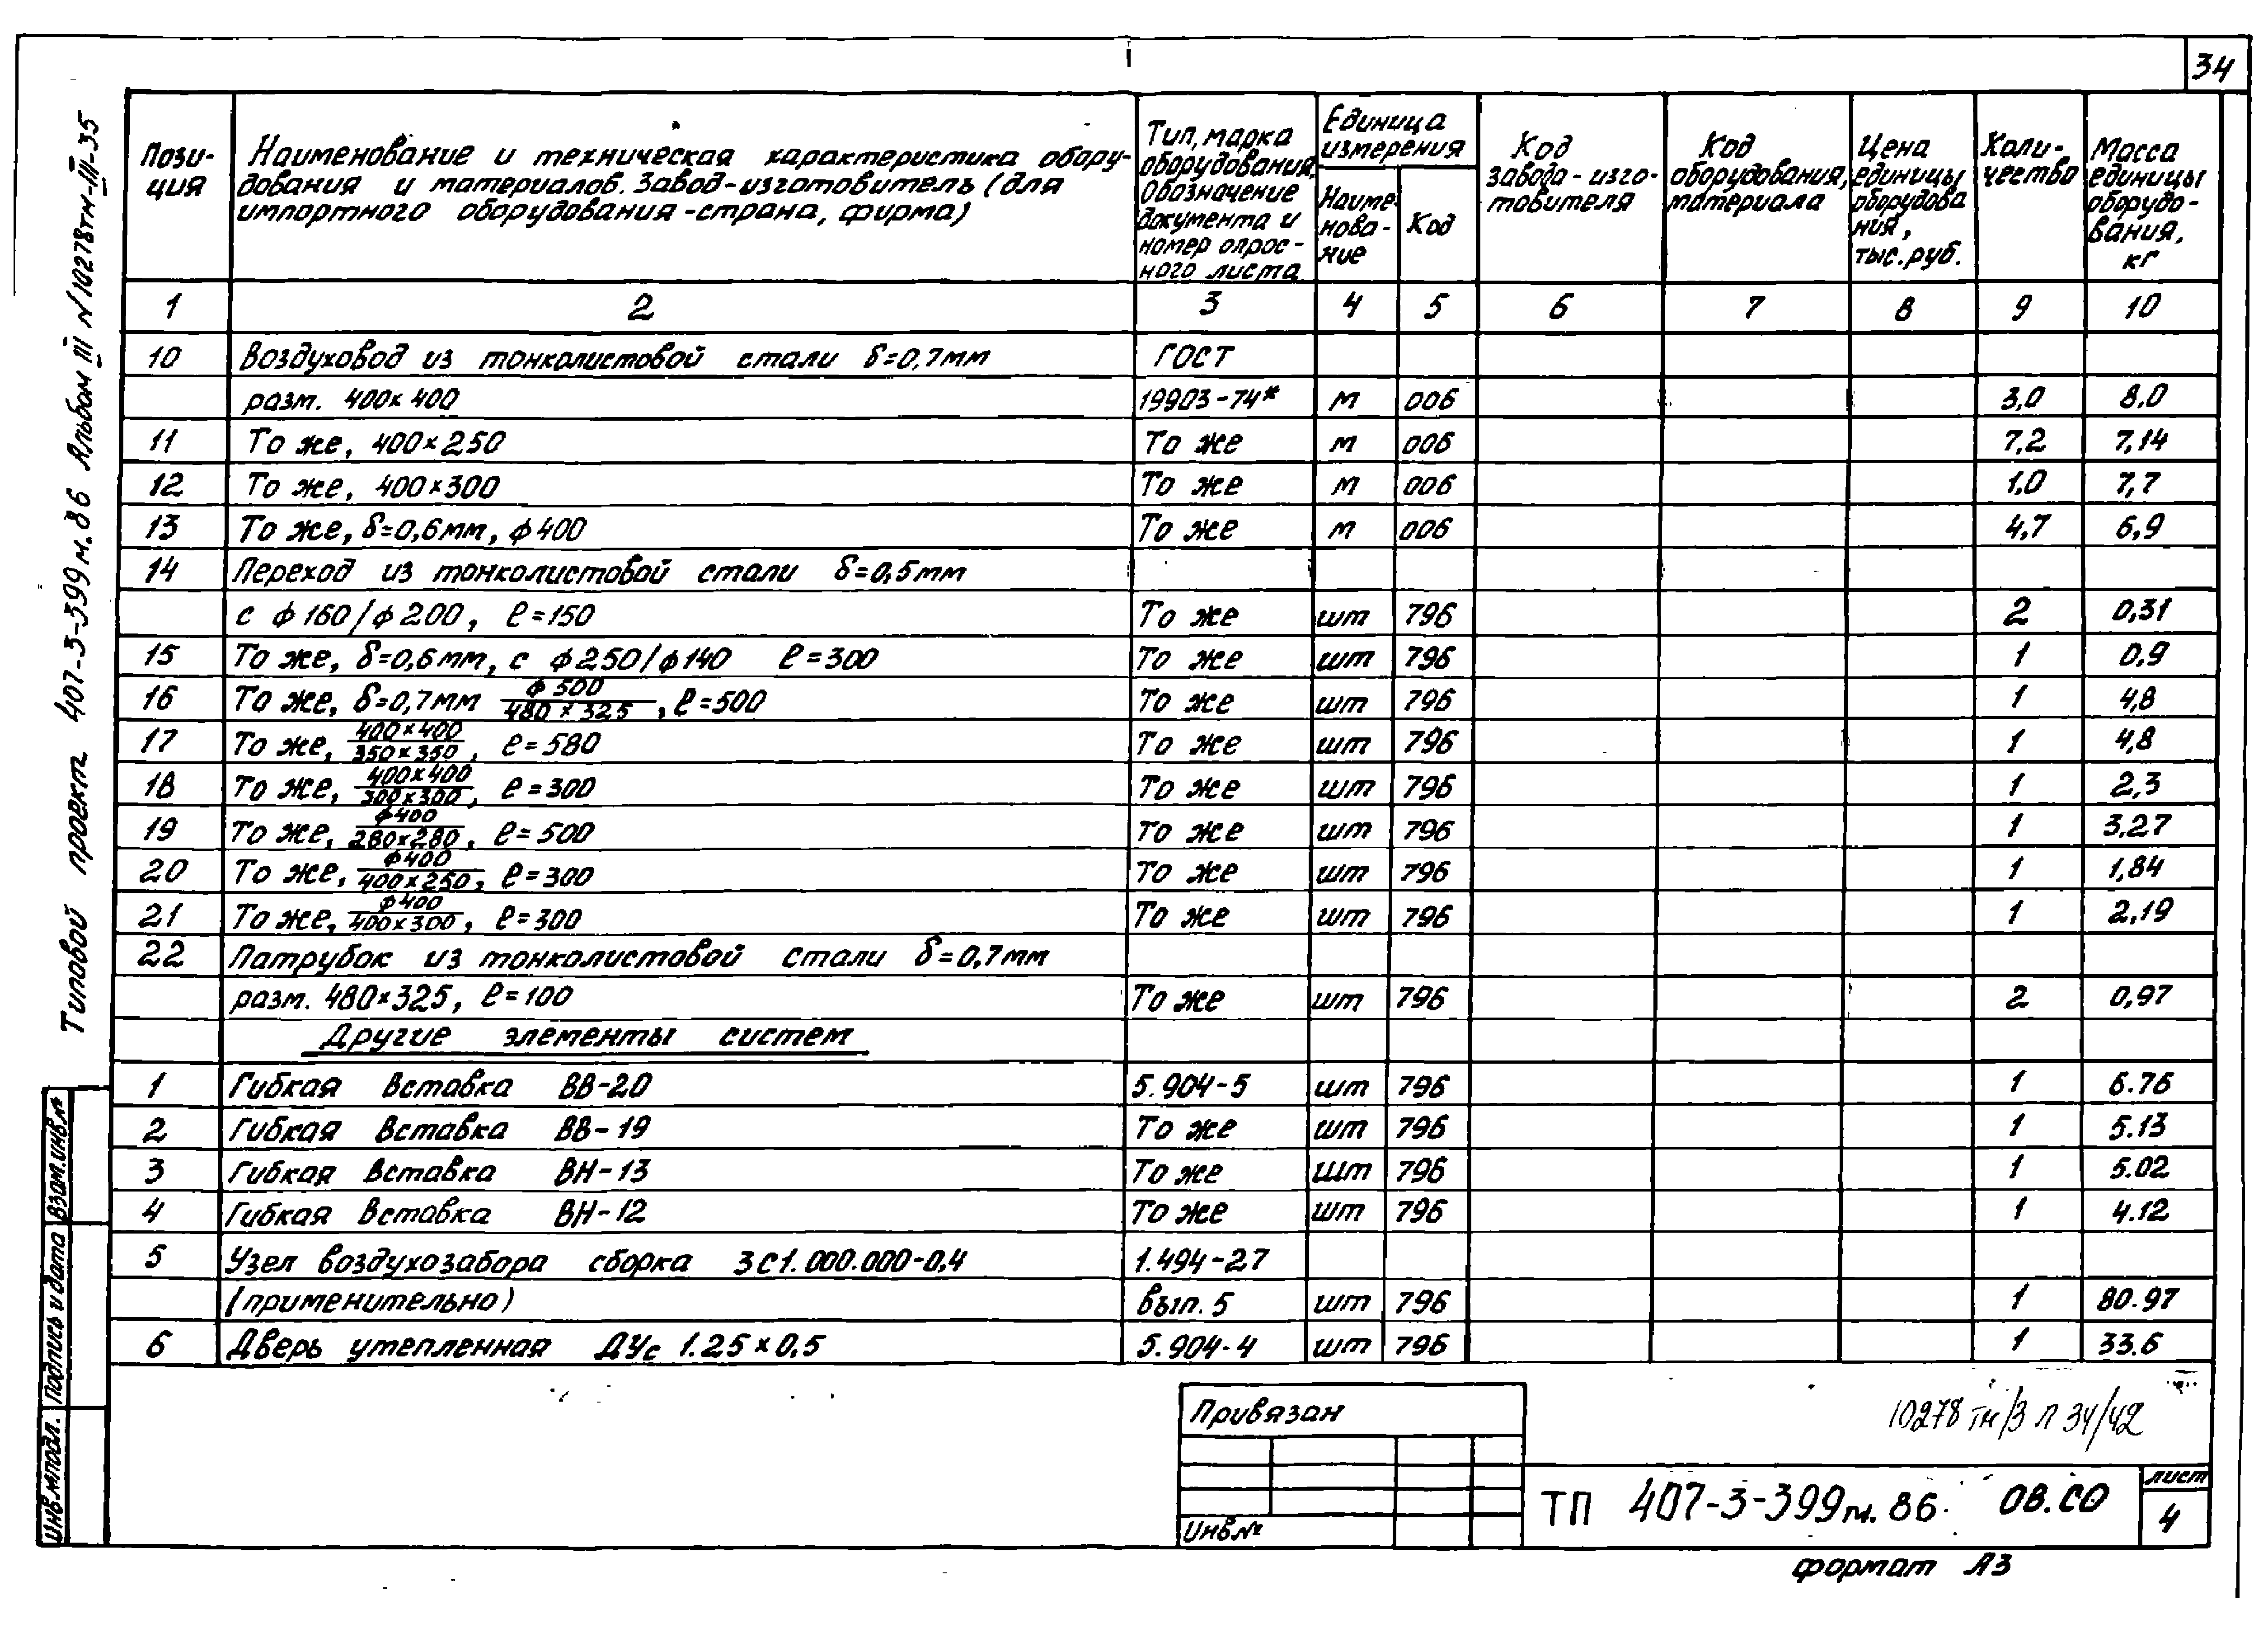 34
Типовой проект 407-3-399м.86 Альбом III №10278тм-III-35
Пози-
ция
Наименование и техническая характеристика обору-
дования и материалов. Завод-изготовитель (для
импортного оборудования-страна, фирма)
Тип, марка
оборудования,
Обозначение
документа и
номер опрос-
ного листа
Единица
измерения
Наиме-
нова-
ние
Код
Код
завода-изго-
товителя
Код
оборудования,
материала
Цена
единицы
оборудова
ния,
тыс.руб.
Коли-
чество
Масса
единицы
оборудо-
вания,
кг
1 2 3 4 5 6 7 8 9 10
10 Воздуховод из тонколистовой стали δ=0,7мм ГОСТ
разм. 400×400 19903-74* м 006 3,0 8.0
11 То же, 400×250 То же м 006 7,2 7,14
12 То же, 400×300 То же м 006 1,0 7,7
13 То же, δ=0,6мм, ф400 То же м 006 4,7 6,9
14 Переход из тонколистовой стали δ=0,5мм
с ф160/ф200, ℓ=150 То же шт 796 2 0,31
15 То же, δ=0,6мм, с ф250/ф140 ℓ=300 То же шт 796 1 0,9
16 То же, δ=0,7мм ф500/480×325, ℓ=500 То же шт 796 1 4,8
17 То же, 400×400/350×350, ℓ=580 То же шт 796 1 4,8
18 То же, 400×400/300×300, ℓ=300 То же шт 796 1 2,3
19 То же, ф400/280×280, ℓ=500 То же шт 796 1 3,27
20 То же, ф400/400×250, ℓ=300 То же шт 796 1 1,84
21 То же, ф400/400×300, ℓ=300 То же шт 796 1 2,19
22 Патрубок из тонколистовой стали δ=0,7мм
разм. 480×325, ℓ=100 То же шт 796 2 0,97
Другие элементы систем
1 Гибкая вставка ВВ-20 5.904-5 шт 796 1 6.76
2 Гибкая вставка ВВ-19 То же шт 796 1 5.13
3 Гибкая вставка ВН-13 То же шт 796 1 5.02
4 Гибкая вставка ВН-12 То же шт 796 1 4.12
5 Узел воздухозабора сборка 3С1.000.000-0,4 1.494-27
(применительно) вып. 5 шт 796 1 80.97
6 Дверь утепленная ДУс 1.25×0,5 5.904-4 шт 796 1 33.6
Взам.инв.№
Подпись и дата
Инв.№подл.
Привязан
Инв.№
10278тм/3 л 34/42
ТП 407-3-399м.86. ОВ.СО
лист
4
формат А3